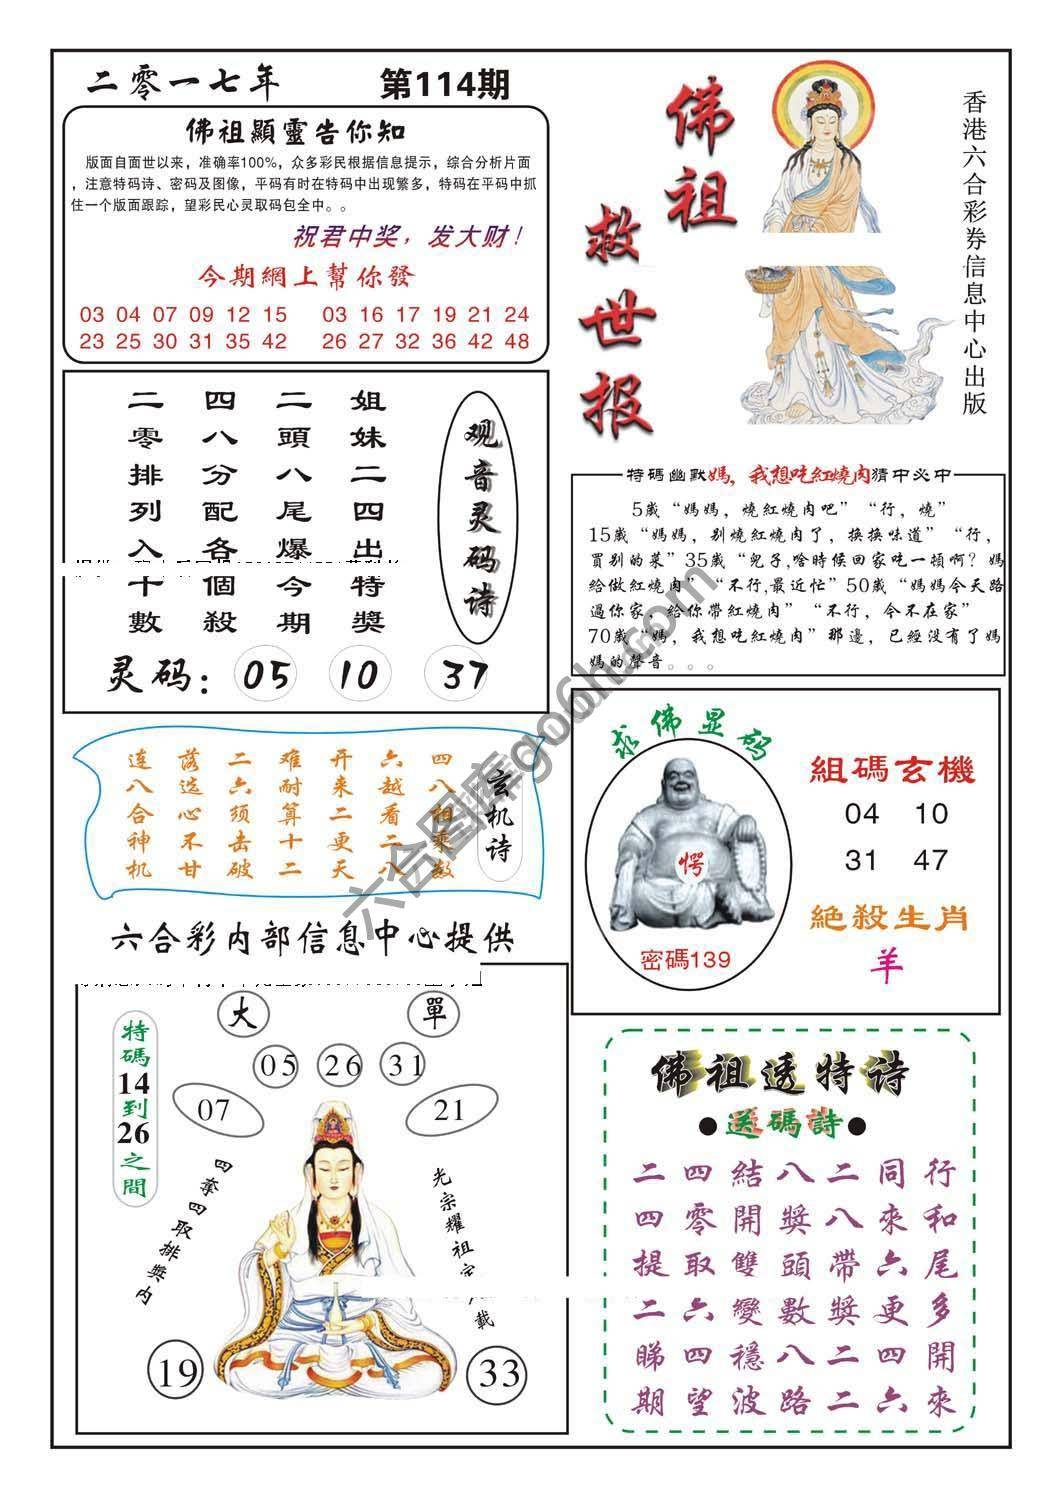 二零一七年 第114期
佛祖顯靈告你知
版面自面世以来，准确率100%，众多彩民根据信息提示，综合分析片面
，注意特码诗、密码及图像，平码有时在特码中出现繁多，特码在平码中抓
住一个版面跟踪，望彩民心灵取码包全中。。
祝君中奖，发大财！
今期網上幫你發
03 04 07 09 12 15 03 16 17 19 21 24
23 25 30 31 35 42 26 27 32 36 42 48
佛祖
救世报
香港六合彩券信息中心出版
观音灵码诗
姐妹二四出特獎
二頭八尾爆今期
四八分配各個殺
二零排列入十數
灵码： 05 10 37
特碼幽默媽，我想吃紅燒肉猜中必中
5歲“媽媽，燒紅燒肉吧”“行，燒”
15歲“媽媽，别燒紅燒肉了，换换味道”“行，
買别的菜”35歲“兒子,啥時候回家吃一頓啊？媽
給做紅燒肉”“不行,最近忙”50歲“媽媽今天路
過你家，给你帶紅燒肉”“不行，今不在家”
70歲“媽，我想吃紅燒肉”那邊，已經没有了媽
媽的聲音。。。
玄机诗
四八相乘数
六越看二八
开来二更天
难耐算十二
二六须击破
落选心不甘
连八合神机
求佛显码
愕
密碼139
組碼玄機
04 10
31 47
絶殺生肖
羊
六合彩内部信息中心提供
大 單
05 26 31
07 21
特碼14到26之間
四奪四取排獎内
光宗耀祖
載
19 33
佛祖透特诗
●送碼詩●
行和尾多開來
同來六更四六
二八帶獎二二
八獎頭數八路
結開雙變穩波
四零取六四望
二四提二睇期
六合图库go6h.com